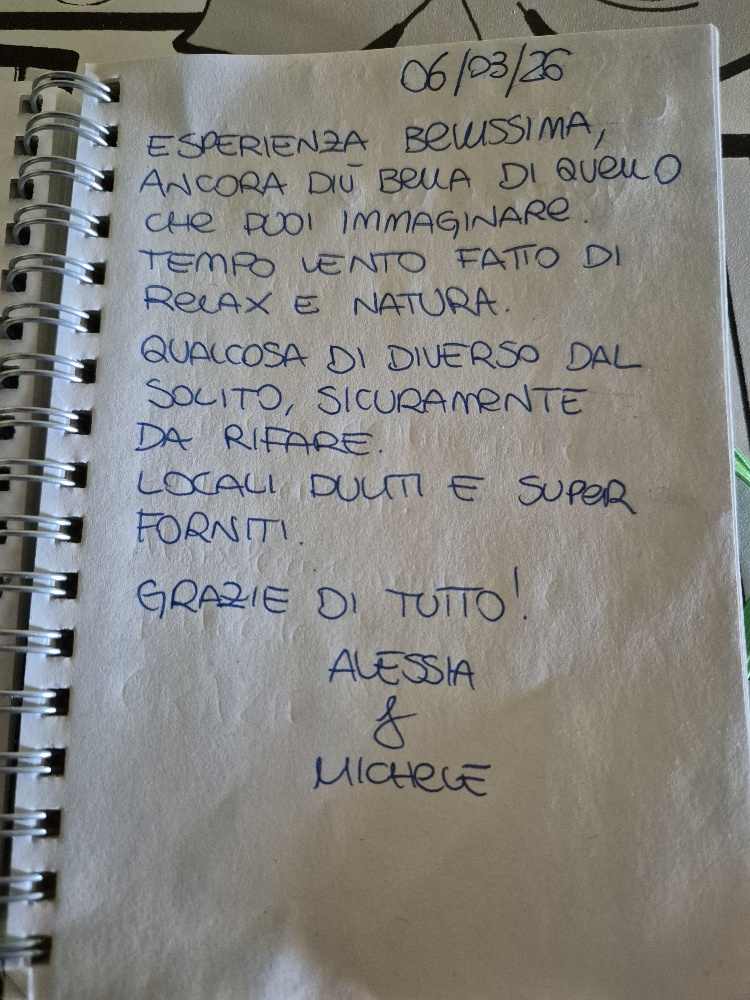 06/03/26
ESPERIENZA BELLISSIMA,
ANCORA PIÙ BELLA DI QUELLO
CHE PUOI IMMAGINARE.
TEMPO LENTO FATTO DI
RELAX E NATURA.
QUALCOSA DI DIVERSO DAL
SOLITO, SICURAMENTE
DA RIFARE.
LOCALI PULITI E SUPER
FORNITI.
GRAZIE DI TUTTO!
ALESSIA
&
MICHELE